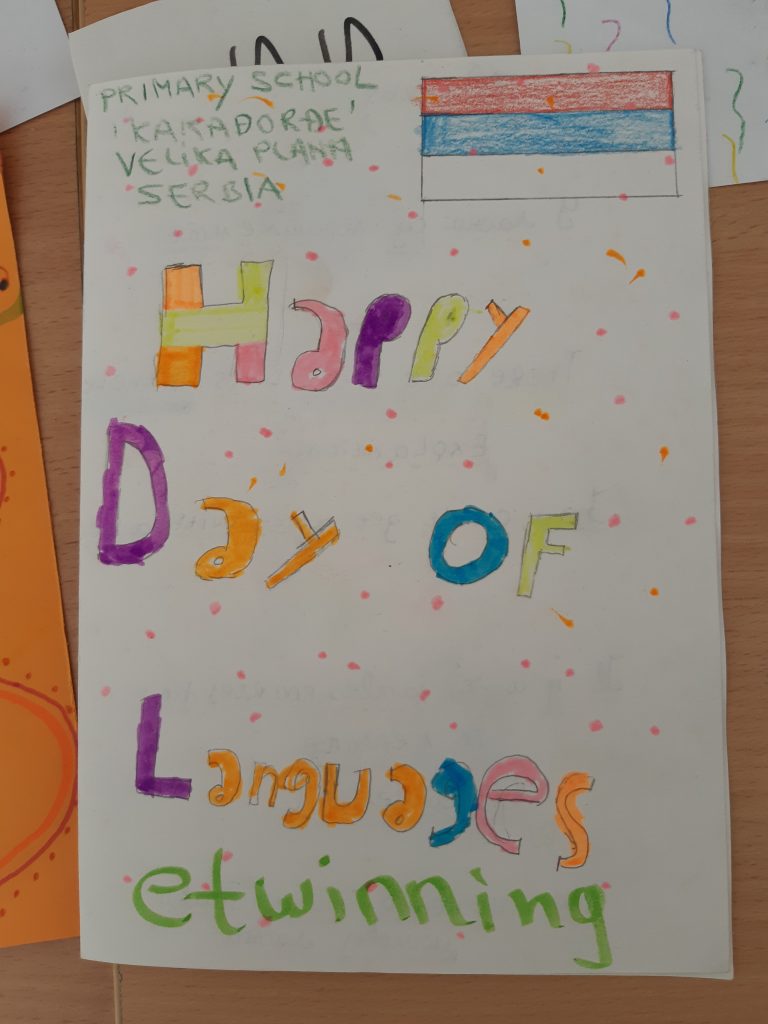 PRIMARY SCHOOL
'KARAĐORĐE'
VELIKA PLANA
SERBIA
Happy
Day OF
Languages
etwinning